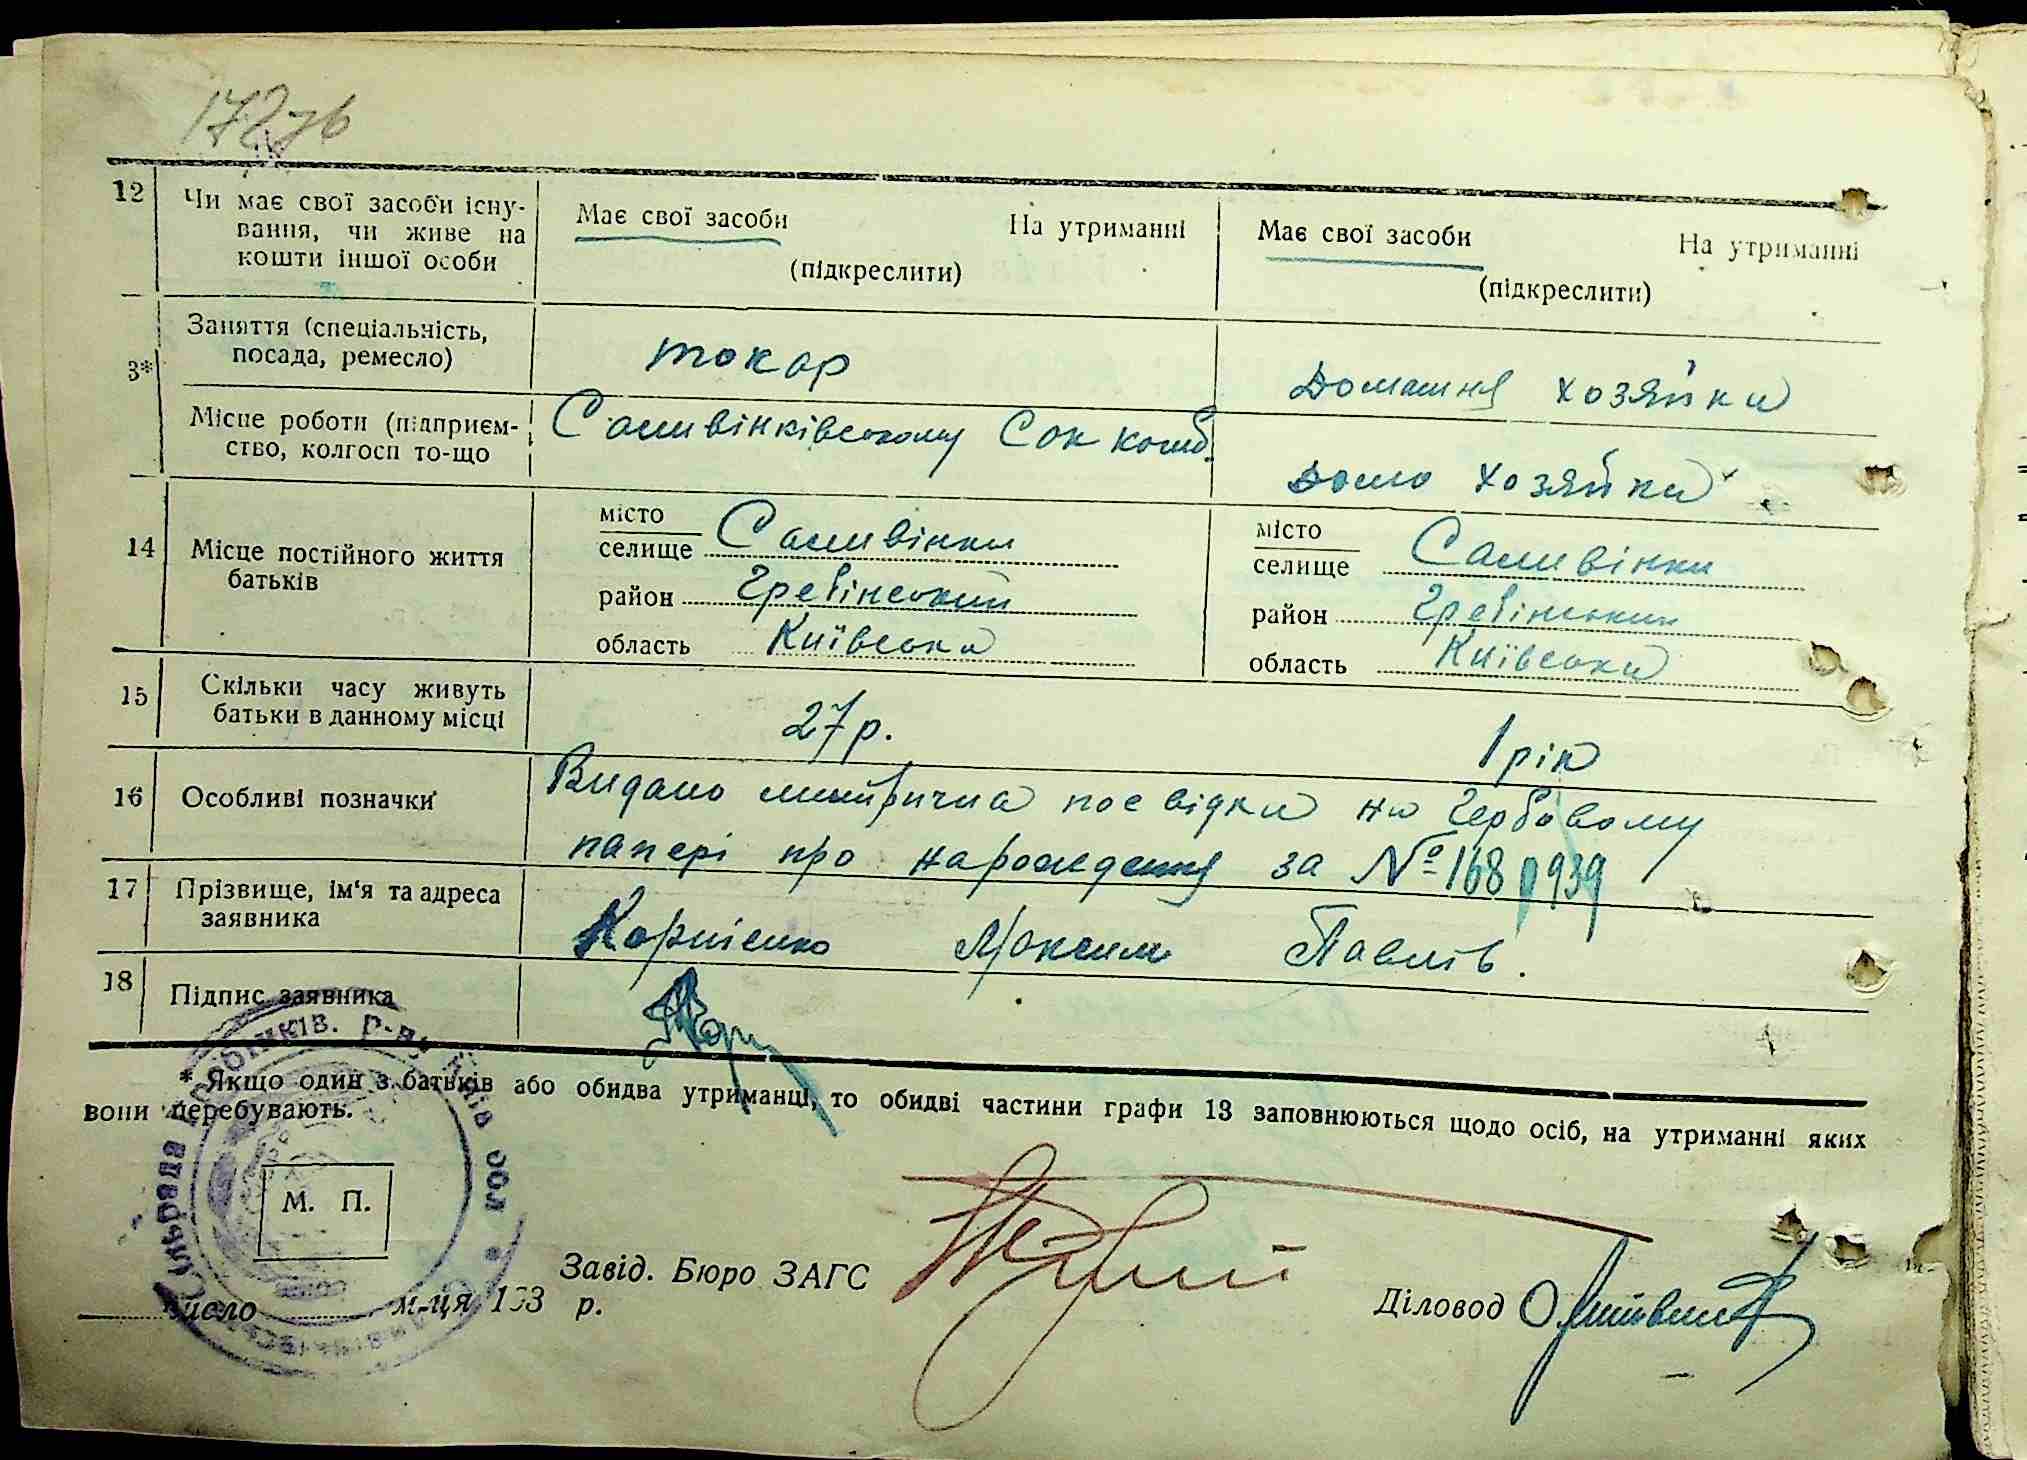 172зв
12 Чи має свої засоби існу-
вання, чи живе на
кошти іншої особи
Має свої засоби На утриманні
(підкреслити)
Має свої засоби На утриманні
(підкреслити)
3*
Заняття (спеціальність,
посада, ремесло)
токар
Домашня хозяйка
Місце роботи (підприєм-
ство, колгосп то-що
Саливінківському Сок комб.
домо хозяйка
14 Місце постійного життя
батьків
місто
селище Саливінки
район Гребінський
область Київська
місто
селище Саливінки
район Гребінський
область Київська
15 Скільки часу живуть
батьки в данному місці
27 р.
1 рік
16 Особливі позначки
Видано посвідка на Гербовому
папері про народження за № 168 1939
17 Прізвище, ім'я та адреса
заявника
Корнієнко Максим Павлів.
18 Підпис заявника
* Якщо один з батьків або обидва утриманці, то обидві частини графи 13 заповнюються щодо осіб, на утриманні яких
вони перебувають.
М. П.
число м-ця 193 р.
Завід. Бюро ЗАГС
Діловод